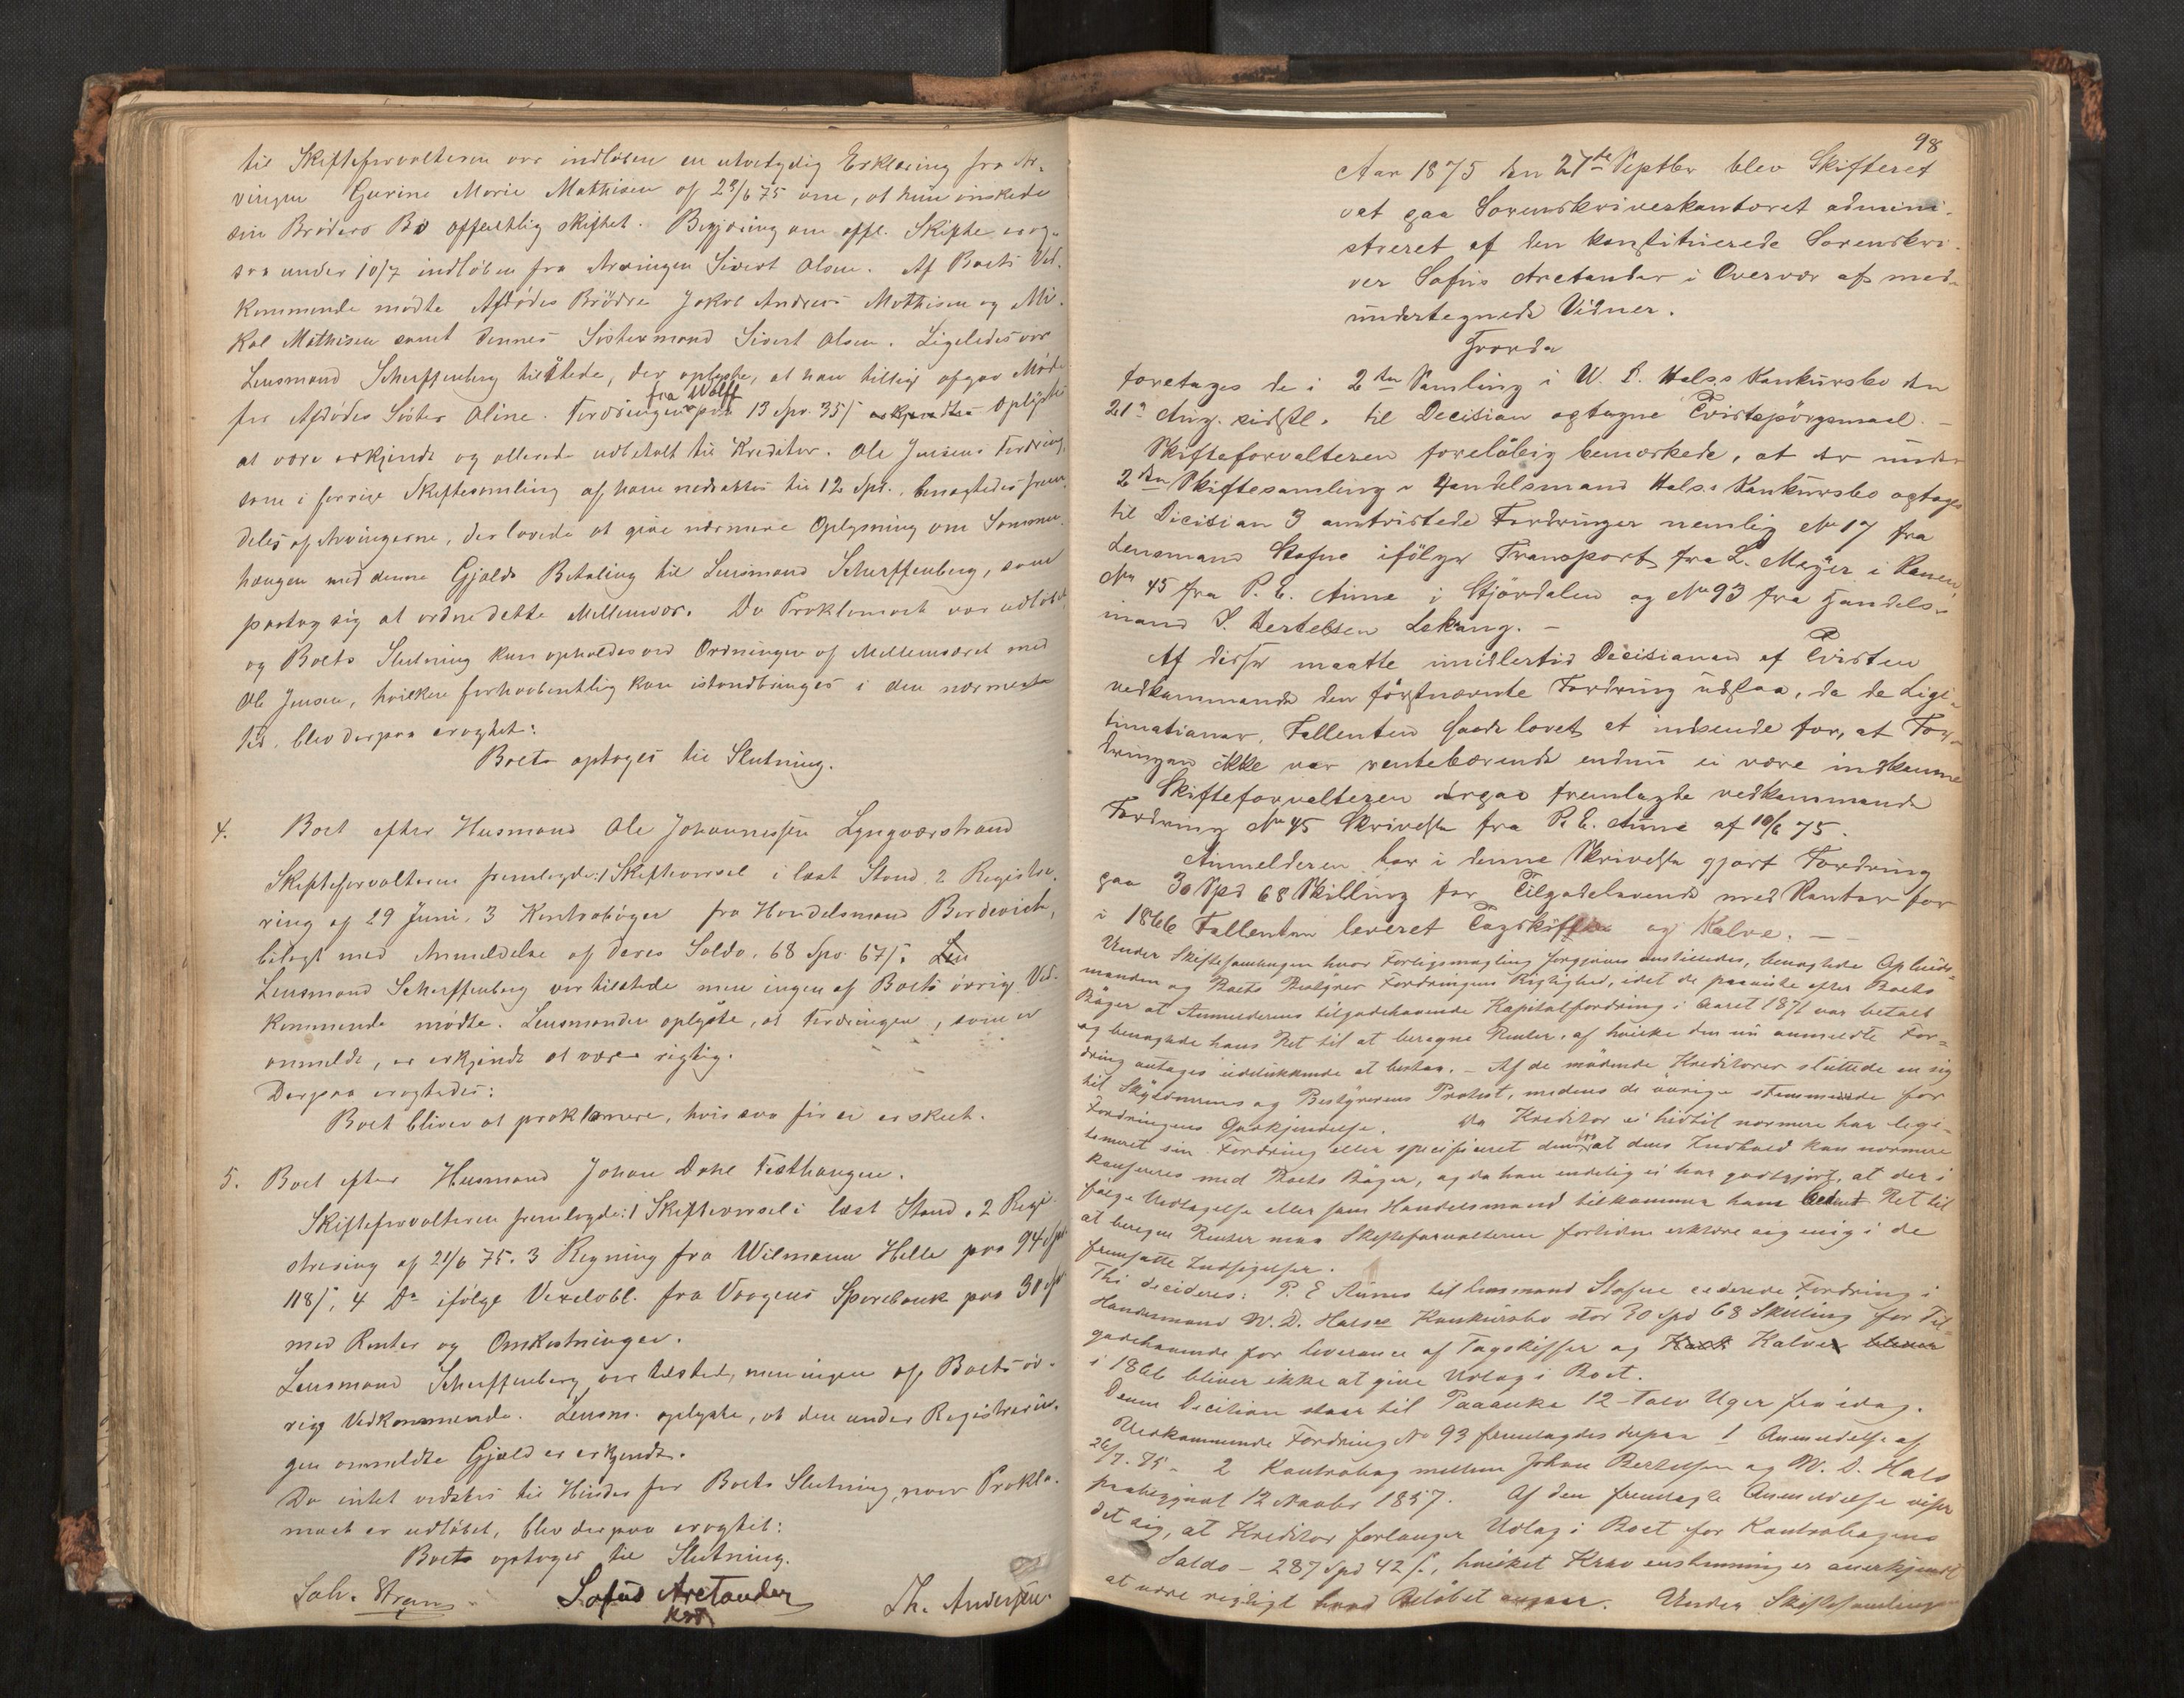 til Skifteforvalteren var indløben en utvetydig Erklæring fra Ar-
vingen Gurine Marie Mathisen af 23/6 75 om, at hun ønskede
sin Broders Bo offentlig skiftet. Begjæring om offl. Skifte er og-
saa under 10/7 indløben fra Arvingen Sivert Olsen. Af Boets Ved-
kommende mødte Afdødes Brødre Jakob Andreas Mathisen og Mi-
kal Mathisen samt dennes Søstermand Sivert Olsen. Ligeledes var
Lensmand Scharffenberg tilstede, der oplyste, at han tillige afgav Møde
fra Wolff
for Afdødes Søster Oline. Fordringen paa 13 Spd. 35 ß erkjendtes Oplystes
at være erkjendt og allerede udbetalt til Kreditor. Ole Jensens Fordring,
som i forrige Skiftesamling af ham nedsattes til 12 Spd., benægtedes frem-
deles af Arvingerne, der lovede at give nærmere Oplysning om Sammen-
hængen med denne Gjælds Betaling til Lensmand Scharffenberg, som
paatog sig at ordne dette Mellemvær. Da Proklamaet var udløbet
og Boets Slutning kun opholdes ved Ordningen af Mellemværet med
Ole Jensen, hvilken forhaabentlig kan istandbringes i den nærmeste
Tid, blev derpaa eragtet:
Boet optages til Slutning.
4. Boet efter Husmand Ole Johannessen Lyngværstrand
Skifteforvalteren fremlagde: 1 Skiftevarsel i læst Stand 2 Registre-
ring af 29 Juni, 3 Kontrabøger fra Handelsmand Bordevich,
bilagt med Anmeldelse af deres Saldo, 68 Spd 67 ß. Len
Lensmand Scharffenberg var tilstede men ingen af Boets øvrige Ved-
kommende mødte. Lensmanden oplyste, at Fordringen, som er
anmeldt, er erkjendt at være rigtig.
Derpaa eragtedes:
Boet bliver at proklamere, hvis saa før ei er skeet.
5. Boet efter Husmand Johan Dahl Festhaugen.
Skifteforvalteren fremlagde: 1 Skiftevarsel i læst Stand. 2 Regi-
strering af 21/6 75. 3 Regning fra Wilmann Helle paa 94 Spd
118 ß, 4 Do ifølge Vexelobl. fra Vaagens Sparebank paa 30 Spd
med Renter og Omkostninger.
Lensmand Scharffenberg var tilstede, men ingen af Boets øv-
rige Vedkommende. Lensm. oplyste, at den under Registrerin-
gen anmeldte Gjæld er erkjendt.
Da intet vidstes til Hinder for Boets Slutning, naar Prokla-
maet er udløbet, blev derpaa eragtet:
Boet optages til Slutning.
Joh. Strøm Sofus Arctander Th. Andersen
kst
98
Aar 1875 den 27de Septbr blev Skifteret
sat paa Sorenskriverkontoret admini-
streret af den konstituerede Sorenskri-
ver Sofus Arctander i Overvær af med-
undertegnede Vidner.
Hvorda
foretages de i 2den Samling i W. D. Halss Konkursbo den
21de Aug. sidstl. til Decision optagne Tvistspørgsmaal. -
Skifteforvalteren foreløbig bemærkede, at der under
2den Skiftesamling i Handelsmand Hals's Konkursbo optages
til Dicision 3 omtvistede Fordringer nemlig No 17 fra
Lensmand Stafne ifølge Transport fra L. Meyer i Ranen
No 45 fra P. E. Aune i Stjørdalen og No 93 fra Handels-
mand J. Bertelsen Lekang. -
Af disse maatte imidlertid Decisionen af Tvisten
vedkommende den førstnævnte Fordring udstaa, da de Legi-
timationer, Fallenten havde lovet at indsende for, at For-
dringen ikke var rentebærende endnu ei være indkomne
Skifteforvalteren derpaa fremlagde vedkommende
Fordring No 45 Skrivelse fra P. E. Aune af 10/6 75.
Anmelderen har i denne Skrivelse gjort Fordring
paa 30 Spd 68 Skilling for Tilgodehavende med Renter for
i 1866 Fallenten leveret Tagskiffer og Kalve. -
Under Skiftesamlingen hvor Forligsmægling forgjæves anstilledes, benægtede Opbuds-
manden og Boets Bestyrer Fordringens Rigtighed, idet de paaviste efter Boets
Bøger at Anmelderens tilgodehavende Kapitalfordring i Aaret 1871 var betalt
og benægtede hans Ret til at beregne Renter, af hvilke den nu anmeldte For-
dring antages udelukkende at bestaa. - Af de mødende Kreditorer sluttede en sig
til Skyldnerens og Bestyrerens Protest, medens de øvrige stemmede for
Fordringens Godkjendelse. Da Kreditor ei hidtil nærmere har legi-
timeret sin Fordring eller specificeret den saa at dens Indhold kan nærmere
konfereres med Boets Bøger, og da han endelig ei har godtgjort, at der i
følge Vedtagelse eller som Handelsmand tilkommer ham Ret til
at beregne Renter maa Skifteforvalteren forlidne erklære sig enig i de
fremsatte Indsigelser.
Thi decideres: P. E. Aunes til Lensmand Stafne cederede Fordring i
Handelsmand W. D. Halss Konkursbo stor 30 Spd 68 Skilling for Til-
godehavende for Leverance af Tagskiffer og Kalve
i 1866 bliver ikke at give Udlæg i Boet.
Denne Decision staar til Paaanke 12 - Tolv Uger fra idag.
Vedkommende Fordring No 93 fremlagdes derpaa 1 Anmeldelse af
26/7. 75 - 2 Kontrabog mellem Johan Bertelsen og W. D. Hals
paabegyndt 12 Novbr 1857. Af den fremlagte Anmeldelse viser
det sig, at Kreditor forlanger Udlæg i Boet for Kontrabogens
Saldo - 287 Spd 42 ß., hvilket Krav enstemmig er anerkjendt
at være rigtigt hvad Beløbet angaar. Under Skiftesamlingen